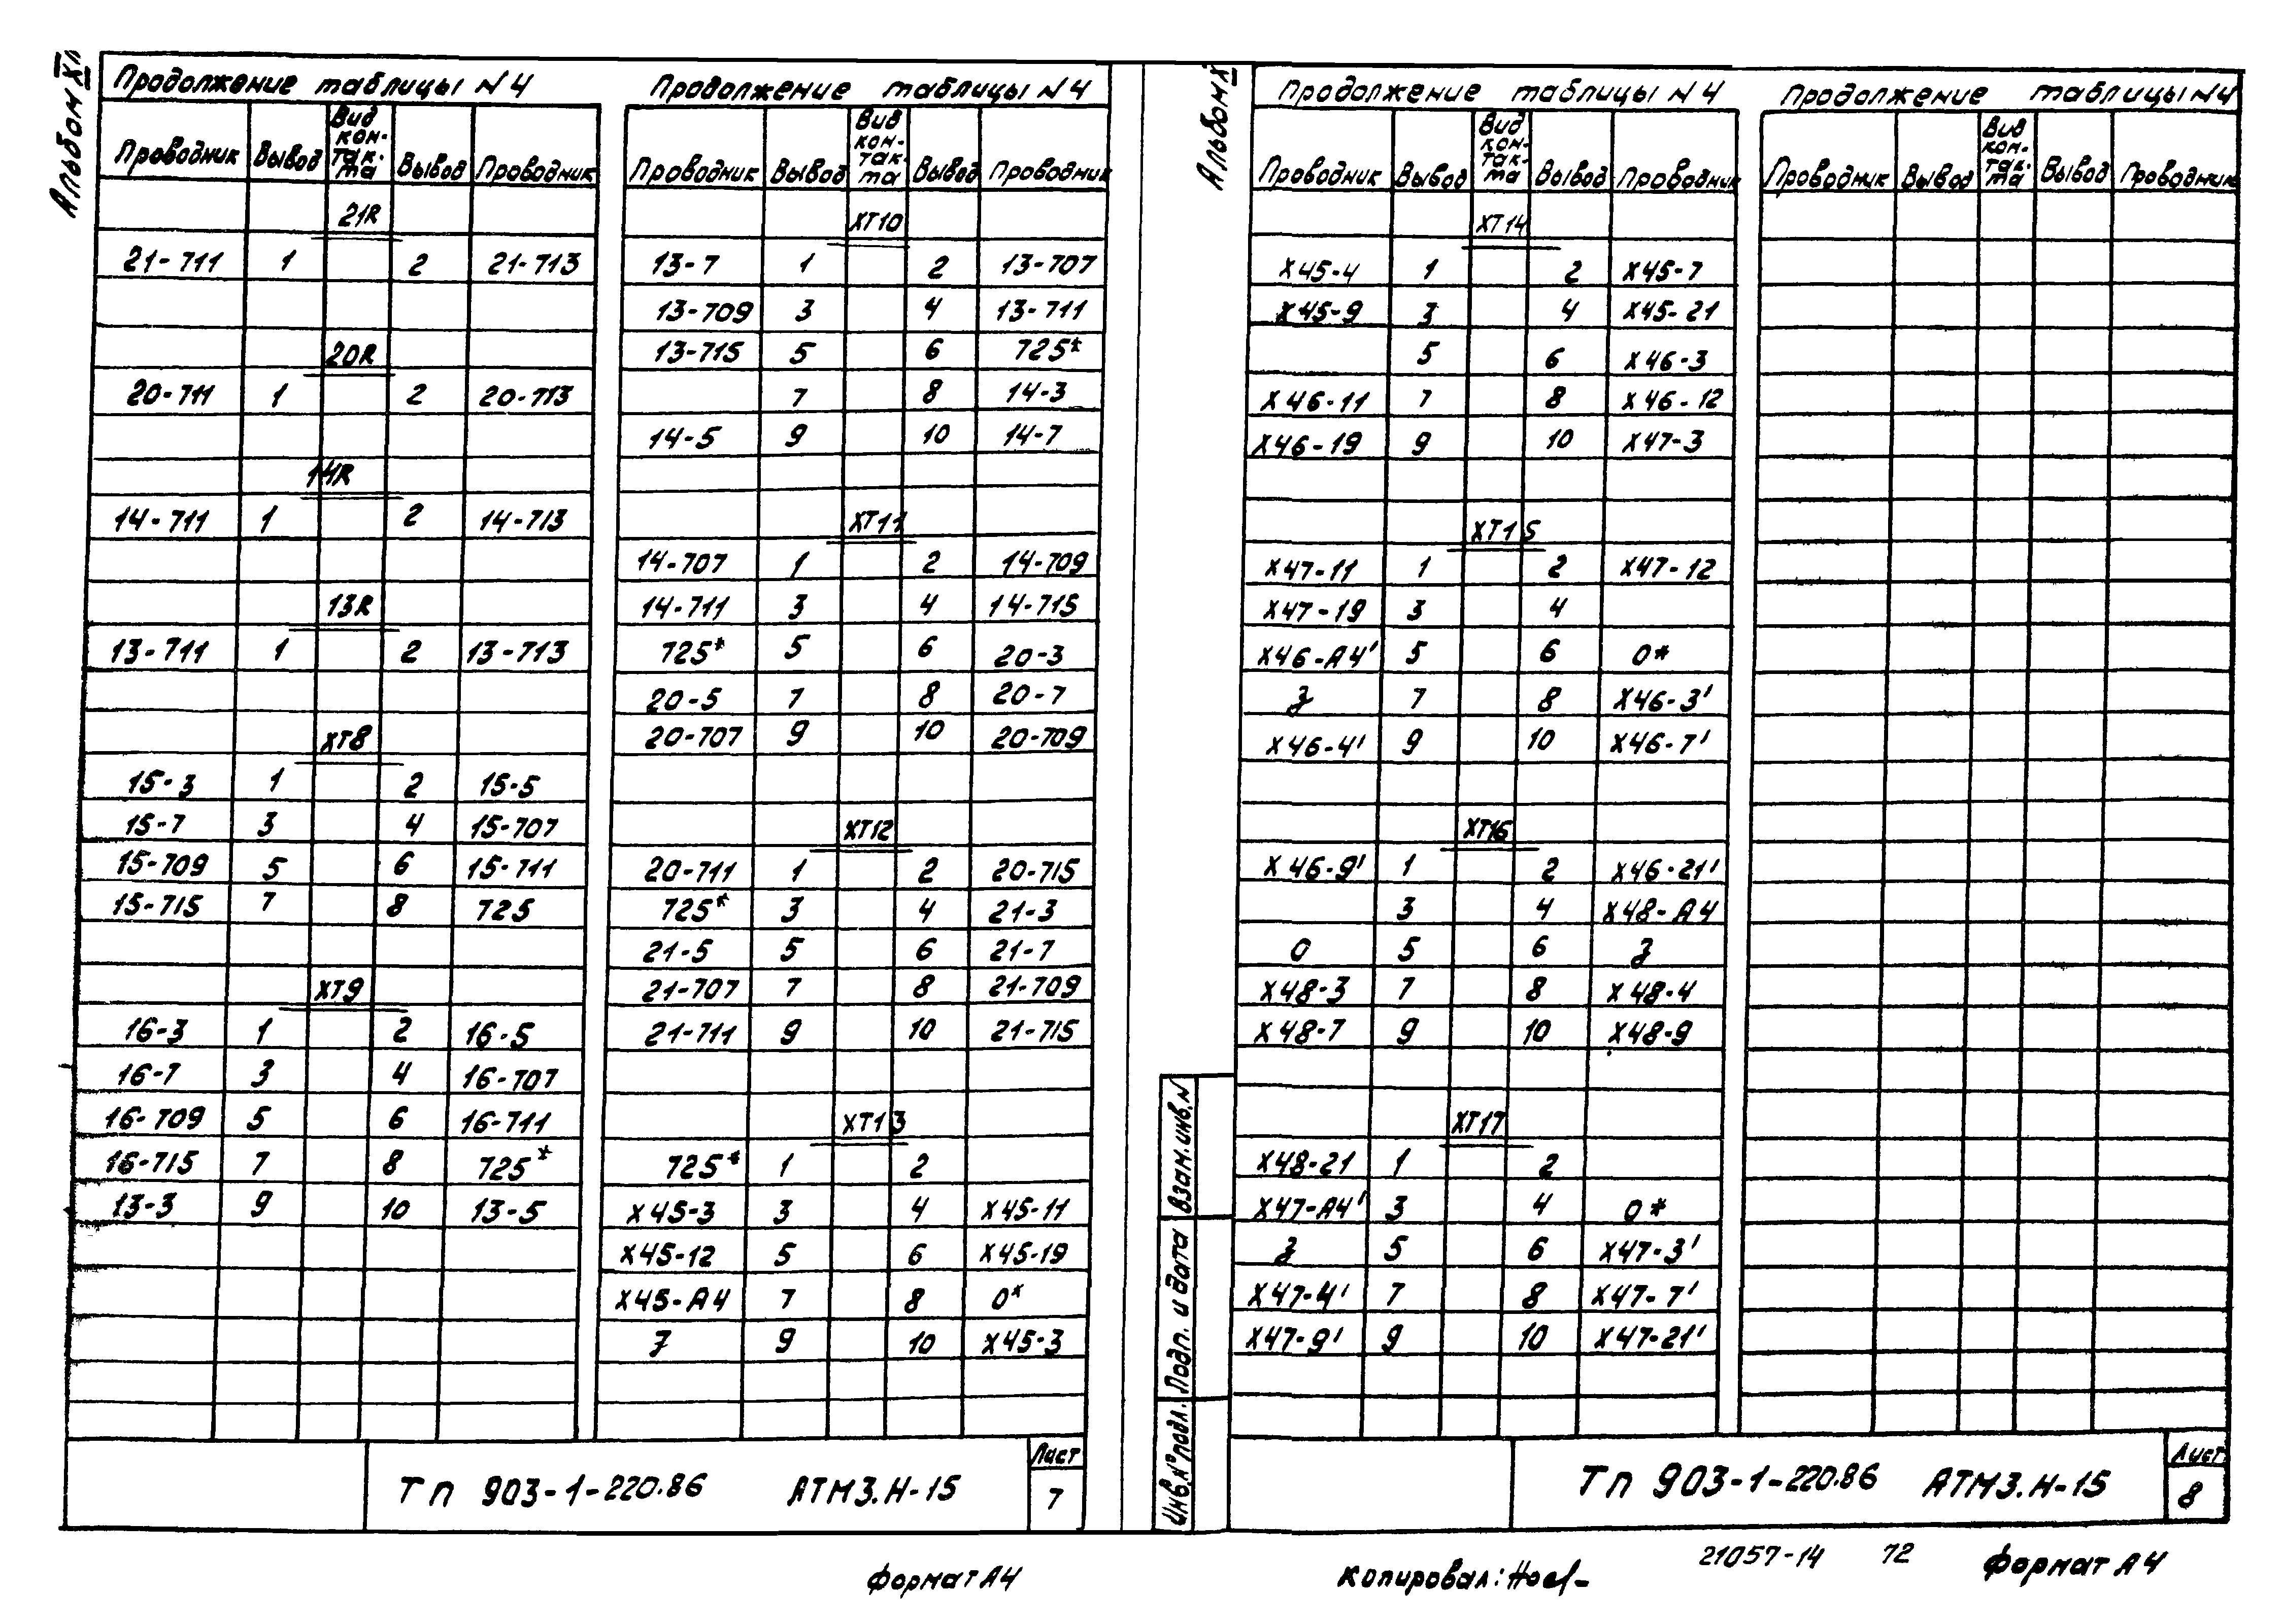 Альбом XII
Продолжение таблицы N4
Проводник Вывод Вид кон-так-та Вывод Проводник
21R
21-711 1 2 21-713
20R
20-711 1 2 20-713
14R
14-711 1 2 14-713
13R
13-711 1 2 13-713
XT8
15-3 1 2 15-5
15-7 3 4 15-707
15-709 5 6 15-711
15-715 7 8 725
XT9
16-3 1 2 16-5
16-7 3 4 16-707
16-709 5 6 16-711
16-715 7 8 725*
13-3 9 10 13-5
Продолжение таблицы N4
Проводник Вывод Вид кон-так-та Вывод Проводник
XT10
13-7 1 2 13-707
13-709 3 4 13-711
13-715 5 6 725*
7 8 14-3
14-5 9 10 14-7
XT11
14-707 1 2 14-709
14-711 3 4 14-715
725* 5 6 20-3
20-5 7 8 20-7
20-707 9 10 20-709
XT12
20-711 1 2 20-715
725* 3 4 21-3
21-5 5 6 21-7
21-707 7 8 21-709
21-711 9 10 21-715
XT13
725* 1 2
X45-3 3 4 X45-11
X45-12 5 6 X45-19
X45-A4 7 8 0*
9 10 X45-3
ТП 903-1-220.86 АТМ3.Н-15
Лист
7
Формат А4
Альбом
Продолжение таблицы N4
Проводник Вывод Вид кон-так-та Вывод Проводник
XT14
X45-4 1 2 X45-7
X45-9 3 4 X45-21
5 6 X46-3
X46-11 7 8 X46-12
X46-19 9 10 X47-3
XT15
X47-11 1 2 X47-12
X47-19 3 4
X46-A4' 5 6 0*
7 8 X46-3'
X46-4' 9 10 X46-7'
XT16
X46-9' 1 2 X46-21'
3 4 X48-A4
0 5 6
X48-3 7 8 X48-4
X48-7 9 10 X48-9
XT17
X48-21 1 2
X47-A4' 3 4 0*
5 6 X47-3'
X47-4' 7 8 X47-7'
X47-9' 9 10 X47-21'
Продолжение таблицы N4
Проводник Вывод Вид кон-так-та Вывод Проводник
Взам.инв.N
Подп. и дата
Инв.N°подл.
ТП 903-1-220.86 АТМ3.Н-15
Лист
8
Копировал:
21057-14 72
Формат А4